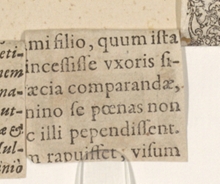 mi filio, quum ista
incessisse vxoris fi-
æcia comparandæ,
nino se pœnas non
c illi pependissent.
m rapuisset, visum